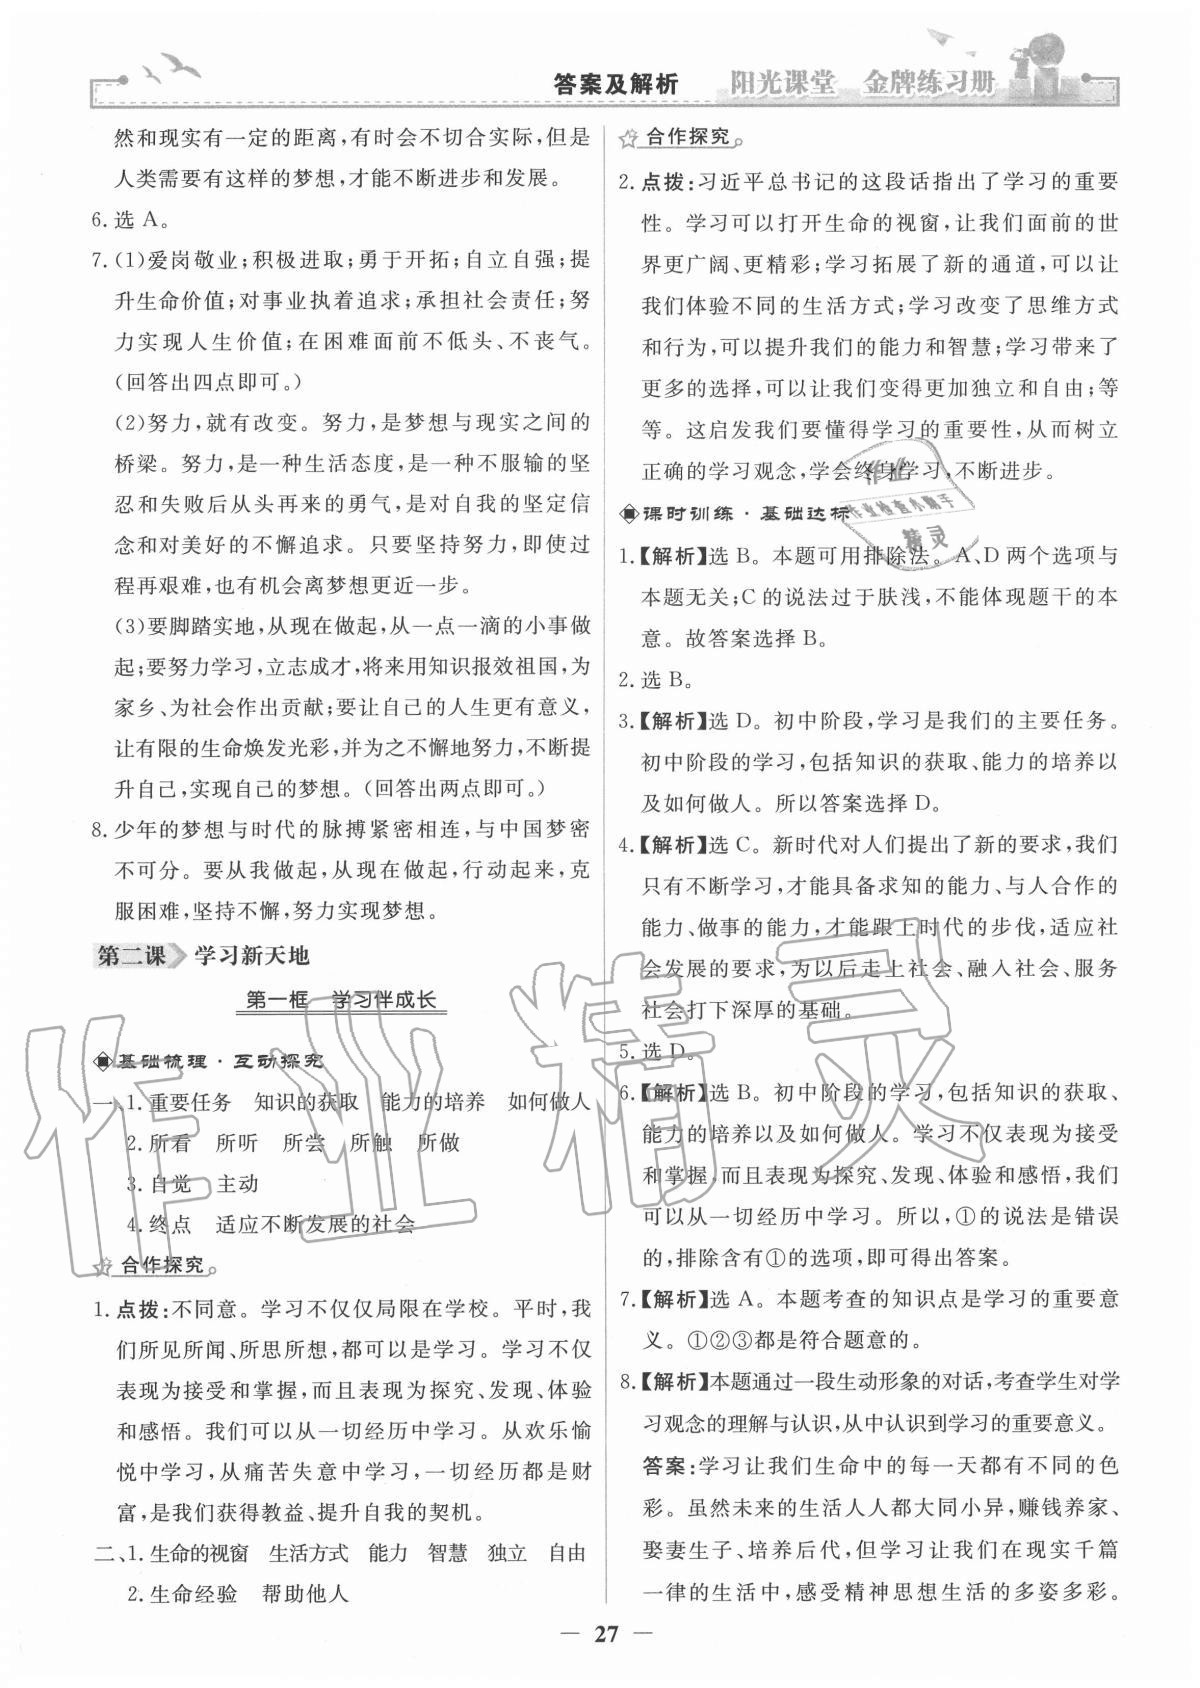 答案及解析 阳光课堂 金牌练习册
然和现实有一定的距离,有时会不切合实际,但是
人类需要有这样的梦想,才能不断进步和发展。
6.选 A。
7.(1)爱岗敬业;积极进取;勇于开拓;自立自强;提
升生命价值;对事业执着追求;承担社会责任;努
力实现人生价值;在困难面前不低头、不丧气。
(回答出四点即可。)
(2)努力,就有改变。努力,是梦想与现实之间的
桥梁。努力,是一种生活态度,是一种不服输的坚
忍和失败后从头再来的勇气,是对自我的坚定信
念和对美好的不懈追求。只要坚持努力,即使过
程再艰难,也有机会离梦想更近一步。
(3)要脚踏实地,从现在做起,从一点一滴的小事做
起;要努力学习,立志成才,将来用知识报效祖国,为
家乡、为社会作出贡献;要让自己的人生更有意义,
让有限的生命焕发光彩,并为之不懈地努力,不断提
升自己,实现自己的梦想。(回答出两点即可。)
8.少年的梦想与时代的脉搏紧密相连,与中国梦密
不可分。要从我做起,从现在做起,行动起来,克
服困难,坚持不懈,努力实现梦想。
第二课 学习新天地
第一框 学习伴成长
基础梳理·互动探究
一、1.重要任务 知识的获取 能力的培养 如何做人
2.所看 所听 所尝 所触 所做
3.自觉 主动
4.终点 适应不断发展的社会
合作探究
1.点拨:不同意。学习不仅仅局限在学校。平时,我
们所见所闻、所思所想,都可以是学习。学习不仅
表现为接受和掌握,而且表现为探究、发现、体验
和感悟。我们可以从一切经历中学习。从欢乐愉
悦中学习,从痛苦失意中学习,一切经历都是财
富,是我们获得教益、提升自我的契机。
二、1.生命的视窗 生活方式 能力 智慧 独立 自由
2.生命经验 帮助他人
合作探究
2.点拨:习近平总书记的这段话指出了学习的重要
性。学习可以打开生命的视窗,让我们面前的世
界更广阔、更精彩;学习拓展了新的通道,可以让
我们体验不同的生活方式;学习改变了思维方式
和行为,可以提升我们的能力和智慧;学习带来了
更多的选择,可以让我们变得更加独立和自由;等
等。这启发我们要懂得学习的重要性,从而树立
正确的学习观念,学会终身学习,不断进步。
课时训练·基础达标
1.【解析】选 B。本题可用排除法。A、D 两个选项与
本题无关;C 的说法过于肤浅,不能体现题干的本
意。故答案选择 B。
2.选 B。
3.【解析】选 D。初中阶段,学习是我们的主要任务。
初中阶段的学习,包括知识的获取、能力的培养以
及如何做人。所以答案选择 D。
4.【解析】选 C。新时代对人们提出了新的要求,我们
只有不断学习,才能具备求知的能力、与人合作的
能力、做事的能力,才能跟上时代的步伐,适应社
会发展的要求,为以后走上社会、融入社会、服务
社会打下深厚的基础。
5.选 D。
6.【解析】选 B。初中阶段的学习,包括知识的获取、
能力的培养以及如何做人。学习不仅表现为接受
和掌握,而且表现为探究、发现、体验和感悟,我们
可以从一切经历中学习。所以,①的说法是错误
的,排除含有①的选项,即可得出答案。
7.【解析】选 A。本题考查的知识点是学习的重要意
义。①②③都是符合题意的。
8.【解析】本题通过一段生动形象的对话,考查学生对学
习观念的理解与认识,从中认识到学习的重要意义。
答案:学习让我们生命中的每一天都有不同的色
彩。虽然未来的生活人人都大同小异,赚钱养家、
娶妻生子、培养后代,但学习让我们在现实千篇
一律的生活中,感受精神思想生活的多姿多彩。
— 27 —
作业精灵
作业
作业检查小助手
精灵